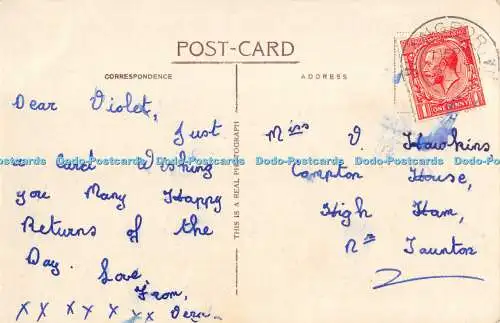 POST-CARD
CORRESPONDENCE
ADDRESS
Dear Violet,
Just
a card Wishing
you Many Happy
Returns of the
Day. Love
From,
x x x x x x Vera.
THIS IS A REAL PHOTOGRAPH
Miss V. Hawkins
Compton House,
High Ham,
Nr Taunton
LANGPORT
1 ONE PENNY 1
Dodo-Postcards Dodo-Postcards Dodo-Postcards Dodo-Postcards Dodo-Postcards